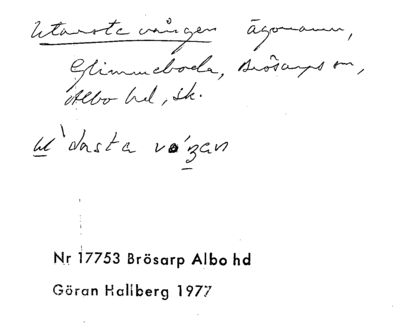 Utarste vången ägonamn,
Glimmeboda, Brösarps sn,
Albo hd, sk.
Nr 17753 Brösarp Albo hd
Göran Hallberg 1977